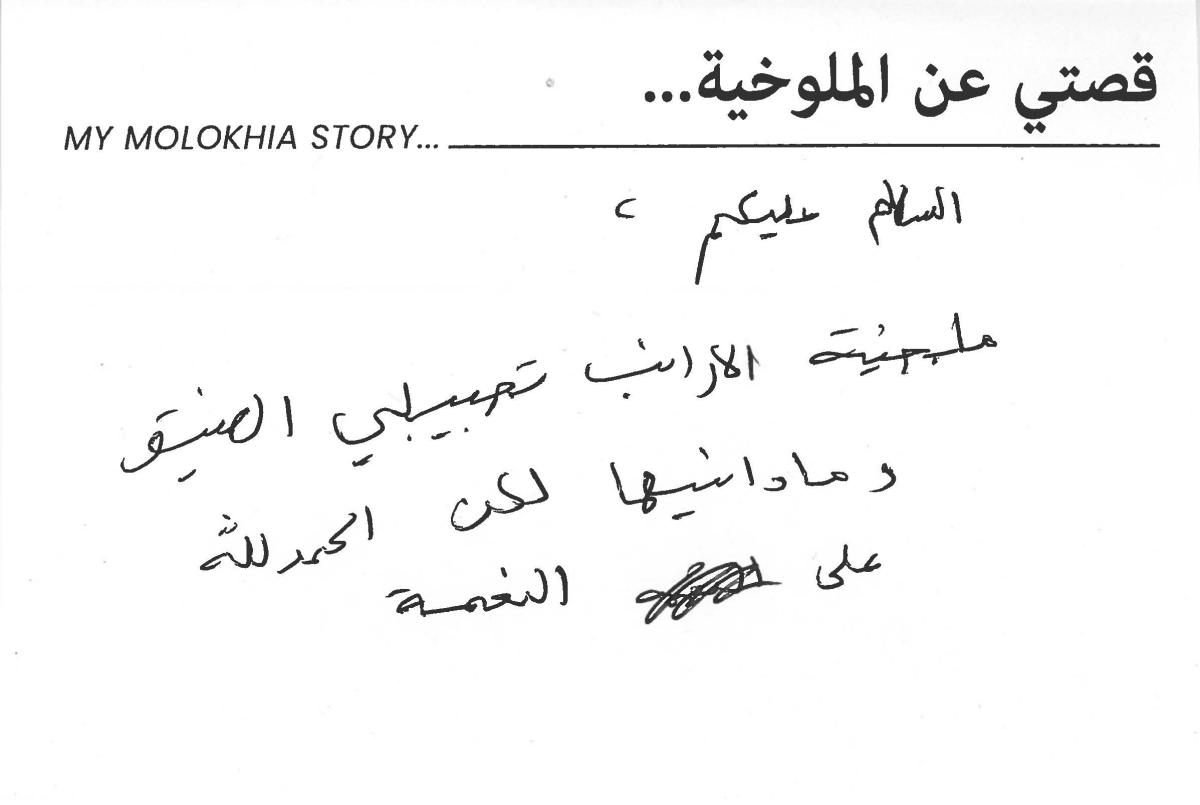 قصتي عن الملوخية...
MY MOLOKHIA STORY...
السلام عليكم ،
الارانب تجيبلي الضيق
وما دانيها لكن الحمدلله
على النعمة